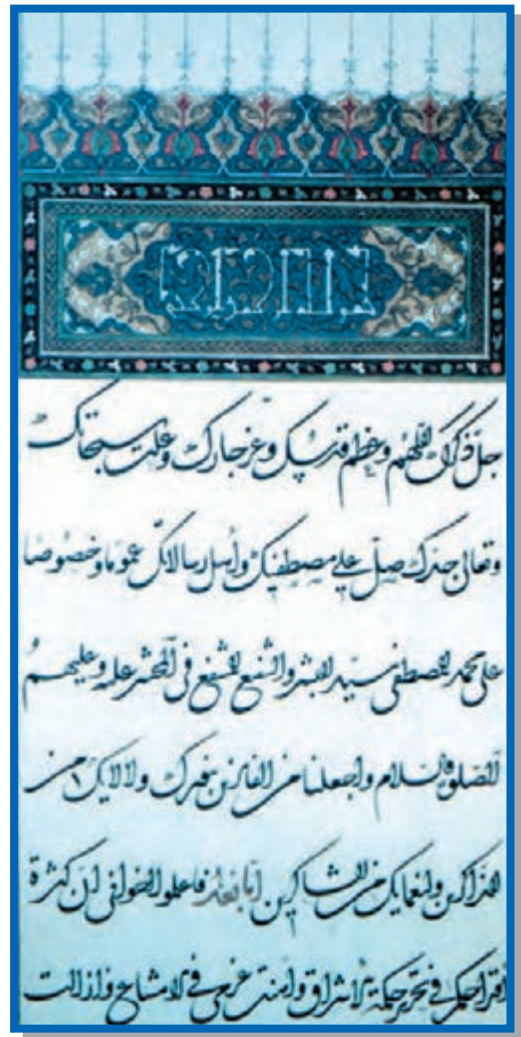 جل ذكرك اللهم وعظم قدسك وعز جارك وعلت سبحاتك
وتعالى جدك صل على مصطفيك وأهل رسالاتك عموما وخصوصا
على محمد المصطفى سيد البشر والشفيع المشفع في المحشر عليه وعليهم
الصلوة والسلام واجعلنا من الفائزين بنورك ولالايك من
الذاكرين ولنعمايك من الشاكرين اما بعد فاعلموا اخواني ان كثرة
اقتراحكم في تحرير حكمة الاشراق واوهنت عزمي في الامتناع وازالت